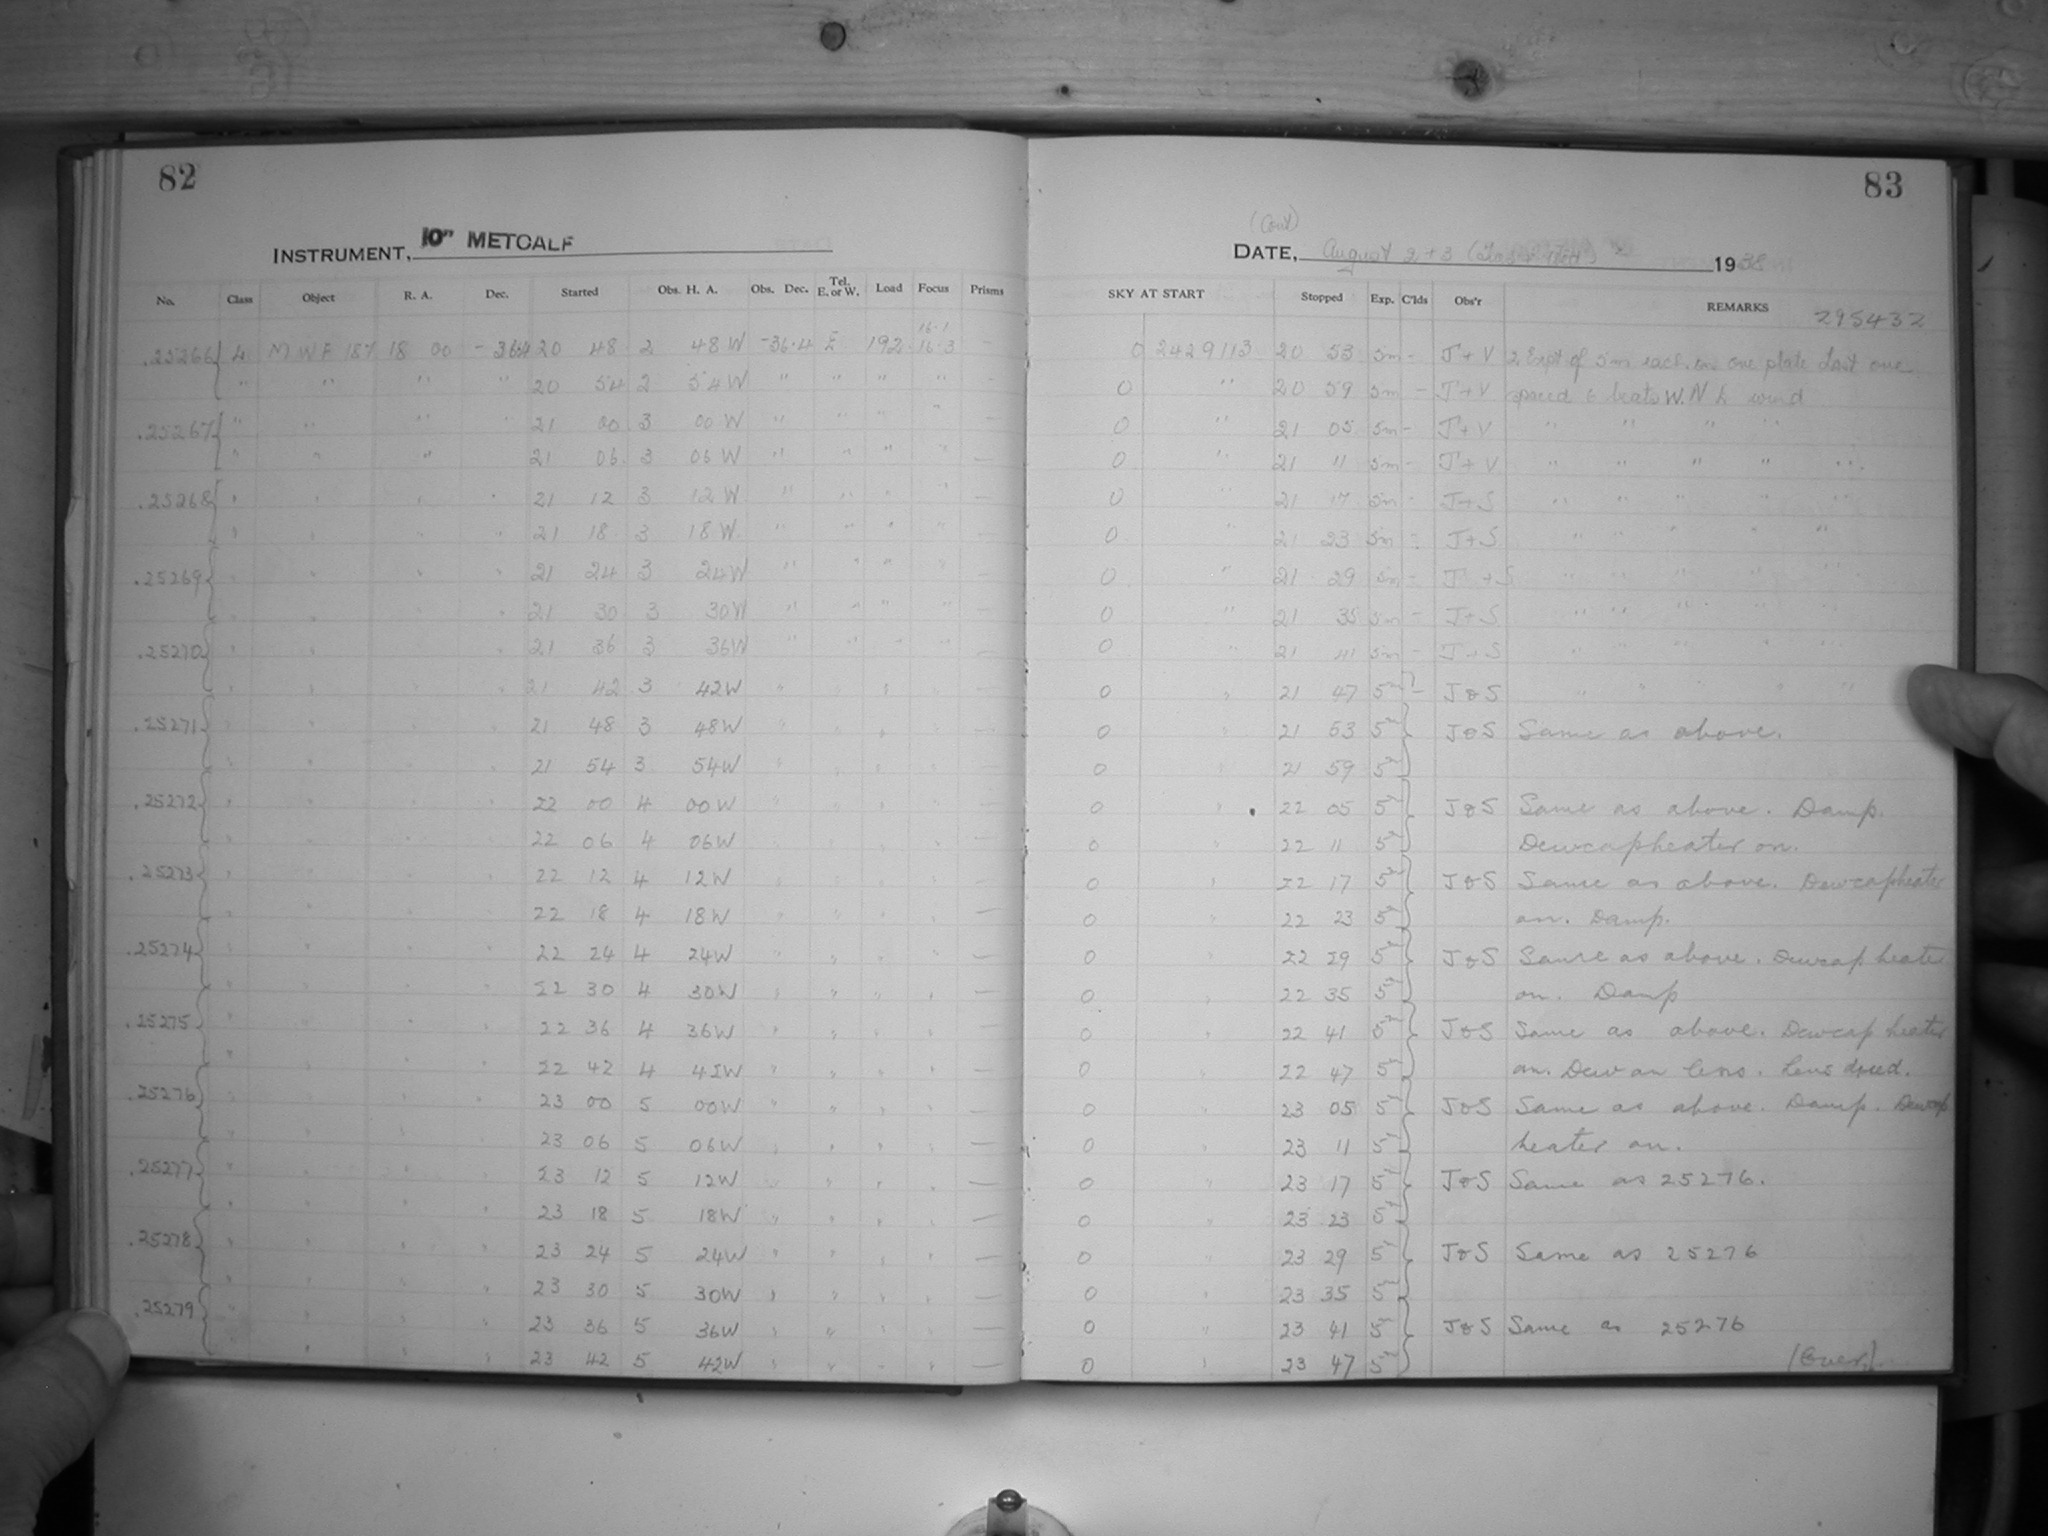 82
INSTRUMENT, 10" METCALF
No. Class Object R. A. Dec. Started Obs. H. A. Obs. Dec. Tel. E. or W. Load Focus Prisms
16.1
.25266 4 MWF 187 18 00 -36.4 20 48 2 48 W -36.4 E 192 16.3 —
" " " " 20 54 2 54 W " " " " —
.25267 " " " " 21 00 3 00 W " " " " —
" " " " 21 06 3 06 W " " " " —
.25268 " " " " 21 12 3 12 W " " " " —
" " " " 21 18 3 18 W " " " " —
.25269 " " " " 21 24 3 24W " " " " —
" " " " 21 30 3 30W " " " " —
.25270 " " " " 21 36 3 36W " " " " —
" " " " 21 42 3 42W " " " " —
.25271 " " " " 21 48 3 48W " " " " —
" " " " 21 54 3 54W " " " " —
.25272 " " " " 22 00 4 00W " " " " —
" " " " 22 06 4 06W " " " " —
.25273 " " " " 22 12 4 12W " " " " —
" " " " 22 18 4 18W " " " " —
.25274 " " " " 22 24 4 24W " " " " —
" " " " 22 30 4 30W " " " " —
.25275 " " " " 22 36 4 36W " " " " —
" " " " 22 42 4 42W " " " " —
.25276 " " " " 23 00 5 00W " " " " —
" " " " 23 06 5 06W " " " " —
.25277 " " " " 23 12 5 12W " " " " —
" " " " 23 18 5 18W " " " " —
.25278 " " " " 23 24 5 24W " " " " —
" " " " 23 30 5 30W " " " " —
.25279 " " " " 23 36 5 36W " " " " —
" " " " 23 42 5 42W " " " " —
83
(Cont)
DATE, August 2+3 1938
SKY AT START Stopped Exp. C'lds Obs'r REMARKS
295432
0 2429113 20 53 5m - J+V 2 Expt of 5m each on one plate Last one
0 " 20 59 5m - J+V spaced 6 beats W. N E wind
0 " 21 05 5m - J+V " " " "
0 " 21 11 5m - J+V " " " " "
0 " 21 17 5m - J+S " " " " "
0 " 21 23 5m - J+S " " " " "
0 " 21 29 5m - J+S " " " " "
0 " 21 35 5m - J+S " " " " "
0 " 21 41 5m - J+S " " " " "
0 " 21 47 5m - J&S " " " " "
0 " 21 53 5m J&S Same as above.
0 " 21 59 5m
0 " 22 05 5m J&S Same as above. Damp.
0 " 22 11 5m Dewcapheater on.
0 " 22 17 5m J&S Same as above. Dewcapheater
0 " 22 23 5m on. Damp.
0 " 22 29 5m J&S Same as above. Dewcap heater
0 " 22 35 5m on. Damp
0 " 22 41 5m J&S Same as above. Dewcap heater
0 " 22 47 5m on. Dew on lens. Lens dried.
0 " 23 05 5m J&S Same as above. Damp. Dewcap
0 " 23 11 5m heater on.
0 " 23 17 5m J&S Same as 25276.
0 " 23 23 5m
0 " 23 29 5m J&S Same as 25276
0 " 23 35 5m
0 " 23 41 5m J&S Same as 25276
0 " 23 47 5m (Over)